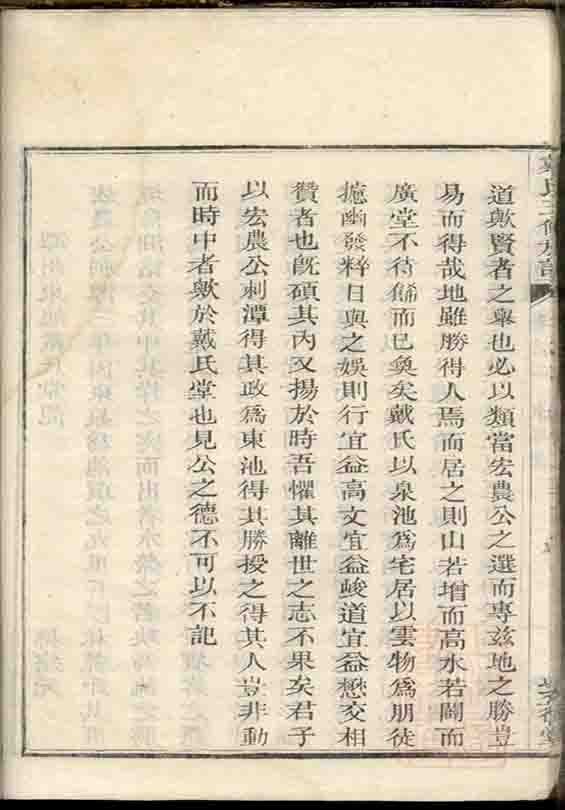 道歟賢者之舉也必以類當宏農公之選而專兹地之勝豈
易而得哉地雖勝得人焉而居之則山若增而高水若闢而
廣堂不待餙而已奐矣戴氏以泉池爲宅居以雲物爲朋徒
攄幽發粹日與之娛則行宜益高文宜益峻道宜益懋交相
贊者也旣碩其內又揚於時吾懼其離世之志不果矣君子
以宏農公刺潭得其政爲東池得其勝授之得其人豈非動
而時中者歟於戴氏堂也見公之德不可以不記